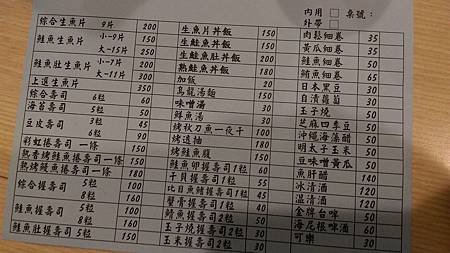 內用 □ 桌號:
外帶 □
綜合生魚片 9片 200
鮭魚生魚片 小-9片 150
大-15片 250
鮭魚肚生魚片 小-7片 200
大-11片 300
上選生魚片 350
綜合壽司 6粒 60
海苔壽司 50
豆皮壽司 3粒 45
6粒 90
彩虹捲壽司 一條 150
熟香烤鮭魚捲壽司一條 150
熟烤鰻魚捲壽司 一條 180
綜合握壽司 5粒 100
8粒 160
鮭魚握壽司 5粒 100
8粒 160
鮭魚肚握壽司 5粒 150
生魚片丼飯 150
生鮭魚丼飯 150
生鮭魚肚丼飯 200
熟鮭魚丼飯 150
加飯 20
烏龍湯麵 150
味噌湯 30
鮮魚湯 50
烤秋刀魚一夜干 100
烤透抽 180
烤鮭魚腹 150
鮭魚卵握壽司1粒 60
干貝握壽司1粒 55
比目魚鰭握壽司1粒 45
蟹膏握壽司1粒 30
鯖魚握壽司2粒 50
玉子燒握壽司2粒 30
玉米握壽司2粒 30
肉鬆細卷 35
黃瓜細卷 35
鮭魚細卷 50
鮪魚細卷 65
日本黑豆 30
自漬蘿蔔 30
玉子燒 50
芝麻四季豆 50
沖繩海藻醋 50
明太子玉米 50
豆味噌黃瓜 50
魚肝醋 120
冰清酒 140
溫清酒 120
金牌台啤 50
海尼根啤酒 60
可樂 30